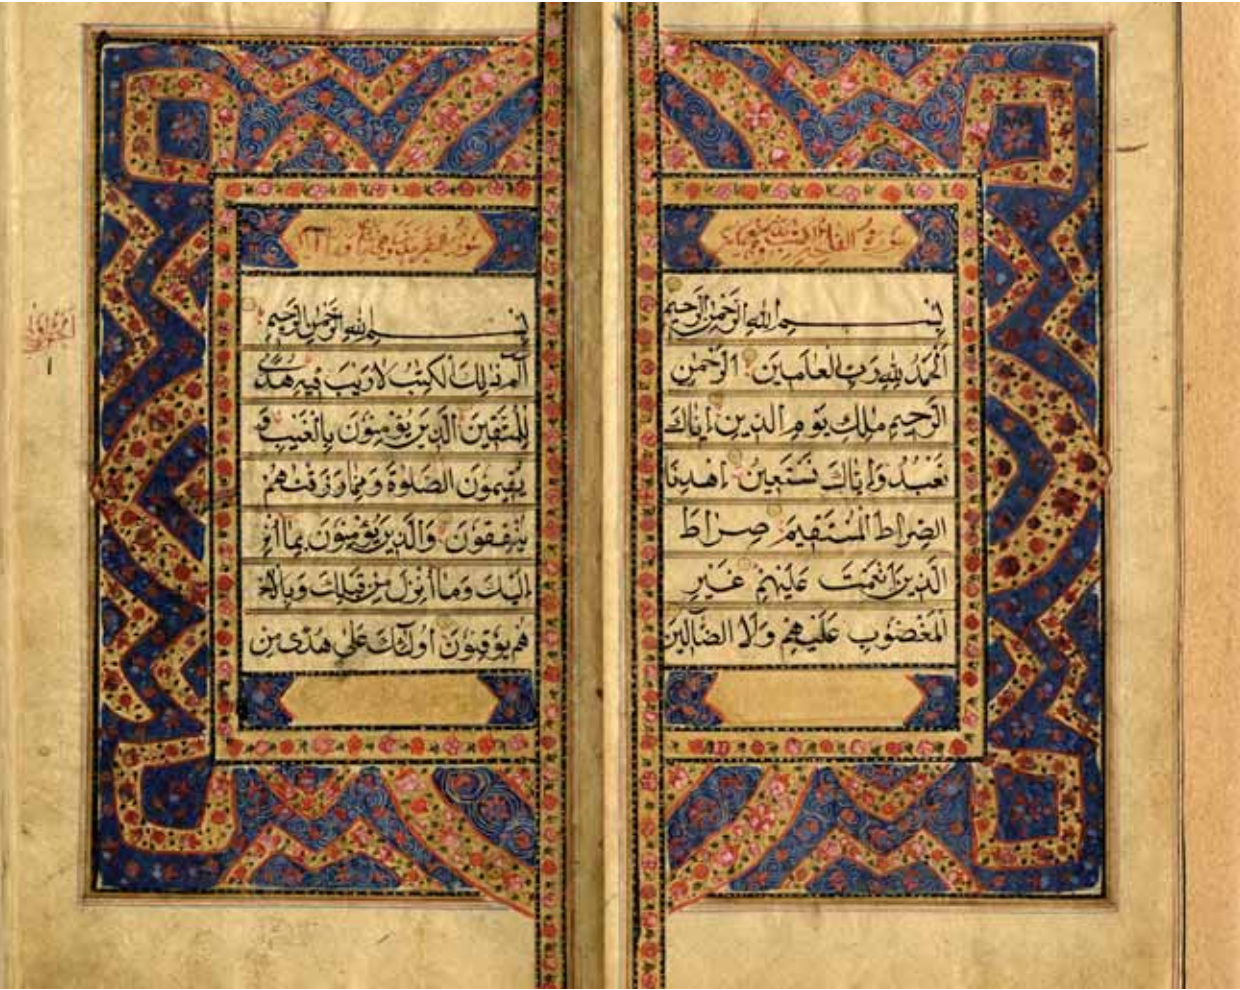 سورة الفاتحة
بسم الله الرَّحْمٰنِ الرَّحِيمِ
اَلْحَمْدُ لِلّٰهِ رَبِّ الْعَالَمِينَ الرَّحْمٰنِ
الرَّحِيمِ مٰلِكِ يَوْمِ الدِّينِ اِيَّاكَ
نَعْبُدُ وَاِيَّاكَ نَسْتَعِينُ اِهْدِنَا
الصِّرَاطَ الْمُسْتَقِيمَ صِرَاطَ
الَّذِينَ اَنْعَمْتَ عَلَيْهِمْ غَيْرِ
الْمَغْضُوبِ عَلَيْهِمْ وَلَا الضَّآلِّينَ
سورة
بسم الله الرَّحْمٰنِ الرَّحِيمِ
الٓمٓ ذٰلِكَ الْكِتٰبُ لَا رَيْبَ فِيهِ هُدًى
لِلْمُتَّقِينَ الَّذِينَ يُؤْمِنُونَ بِالْغَيْبِ وَ
يُقِيمُونَ الصَّلٰوةَ وَمِمَّا رَزَقْنٰهُمْ
يُنْفِقُونَ وَالَّذِينَ يُؤْمِنُونَ بِمَا اُنْزِ
اِلَيْكَ وَمَا اُنْزِلَ مِنْ قَبْلِكَ وَبِالْاٰخِ
هُمْ يُوقِنُونَ اُولٰٓئِكَ عَلٰى هُدًى مِنْ
١